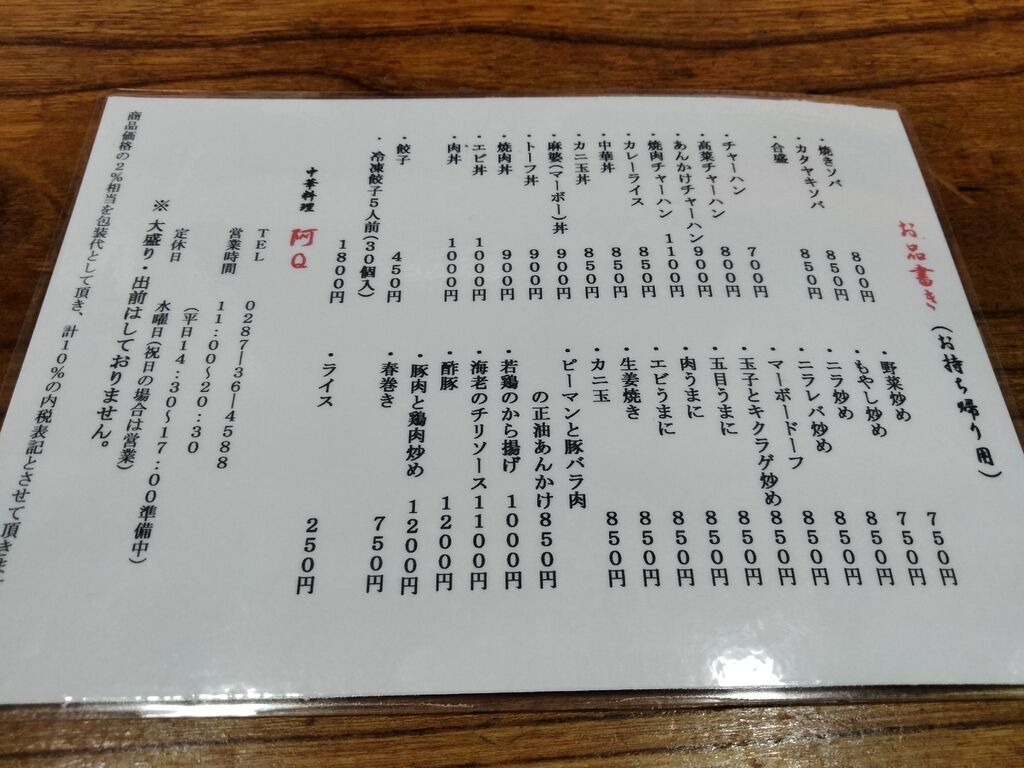 お品書き(お持ち帰り用)
・焼きソバ 800円
・カタヤキソバ 850円
・合盛 850円
・チャーハン 700円
・高菜チャーハン 800円
・あんかけチャーハン 900円
・焼肉チャーハン 1100円
・カレーライス 850円
・中華丼 850円
・カニ玉丼 850円
・麻婆(マーボー)丼 900円
・トーフ丼 900円
・焼肉丼 900円
・エビ丼 1000円
・肉丼 1000円
・餃子 450円
・冷凍餃子5人前(30個入)
1800円
・野菜炒め 750円
・もやし炒め 750円
・ニラ炒め 850円
・ニラレバ炒め 850円
・マーボードーフ 850円
・玉子とキクラゲ炒め 850円
・五目うまに 850円
・肉うまに 850円
・エビうまに 850円
・生姜焼き 850円
・カニ玉 850円
・ピーマンと豚バラ肉
の正油あんかけ 850円
・若鶏のから揚げ 1000円
・海老のチリソース 1100円
・酢豚 1200円
・豚肉と鶏肉炒め 1200円
・春巻き 750円
・ライス 250円
中華料理 阿Q
TEL 0287―36―4588
営業時間 11:00〜20:30
(平日14:30〜17:00準備中)
定休日 水曜日(祝日の場合は営業)
※ 大盛り・出前はしておりません。
商品価格の2%相当を包装代として頂き、計10%の内税表記とさせて頂き